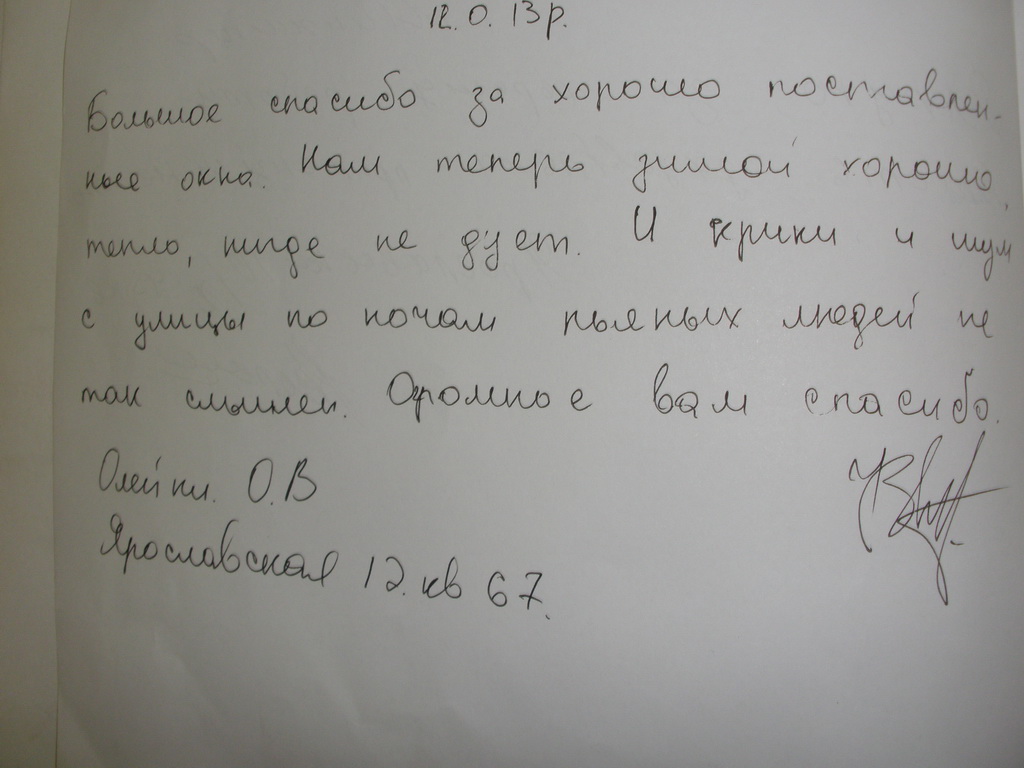 12.0.13р.
Большое спасибо за хорошо поставлен-
ные окна. Нам теперь зимой хорошо,
тепло, нигде не дует. И крики и шум
с улицы по ночам пьяных людей не
так слышен. Огромное вам спасибо.
О.В
Ярославская 12. кв 67.